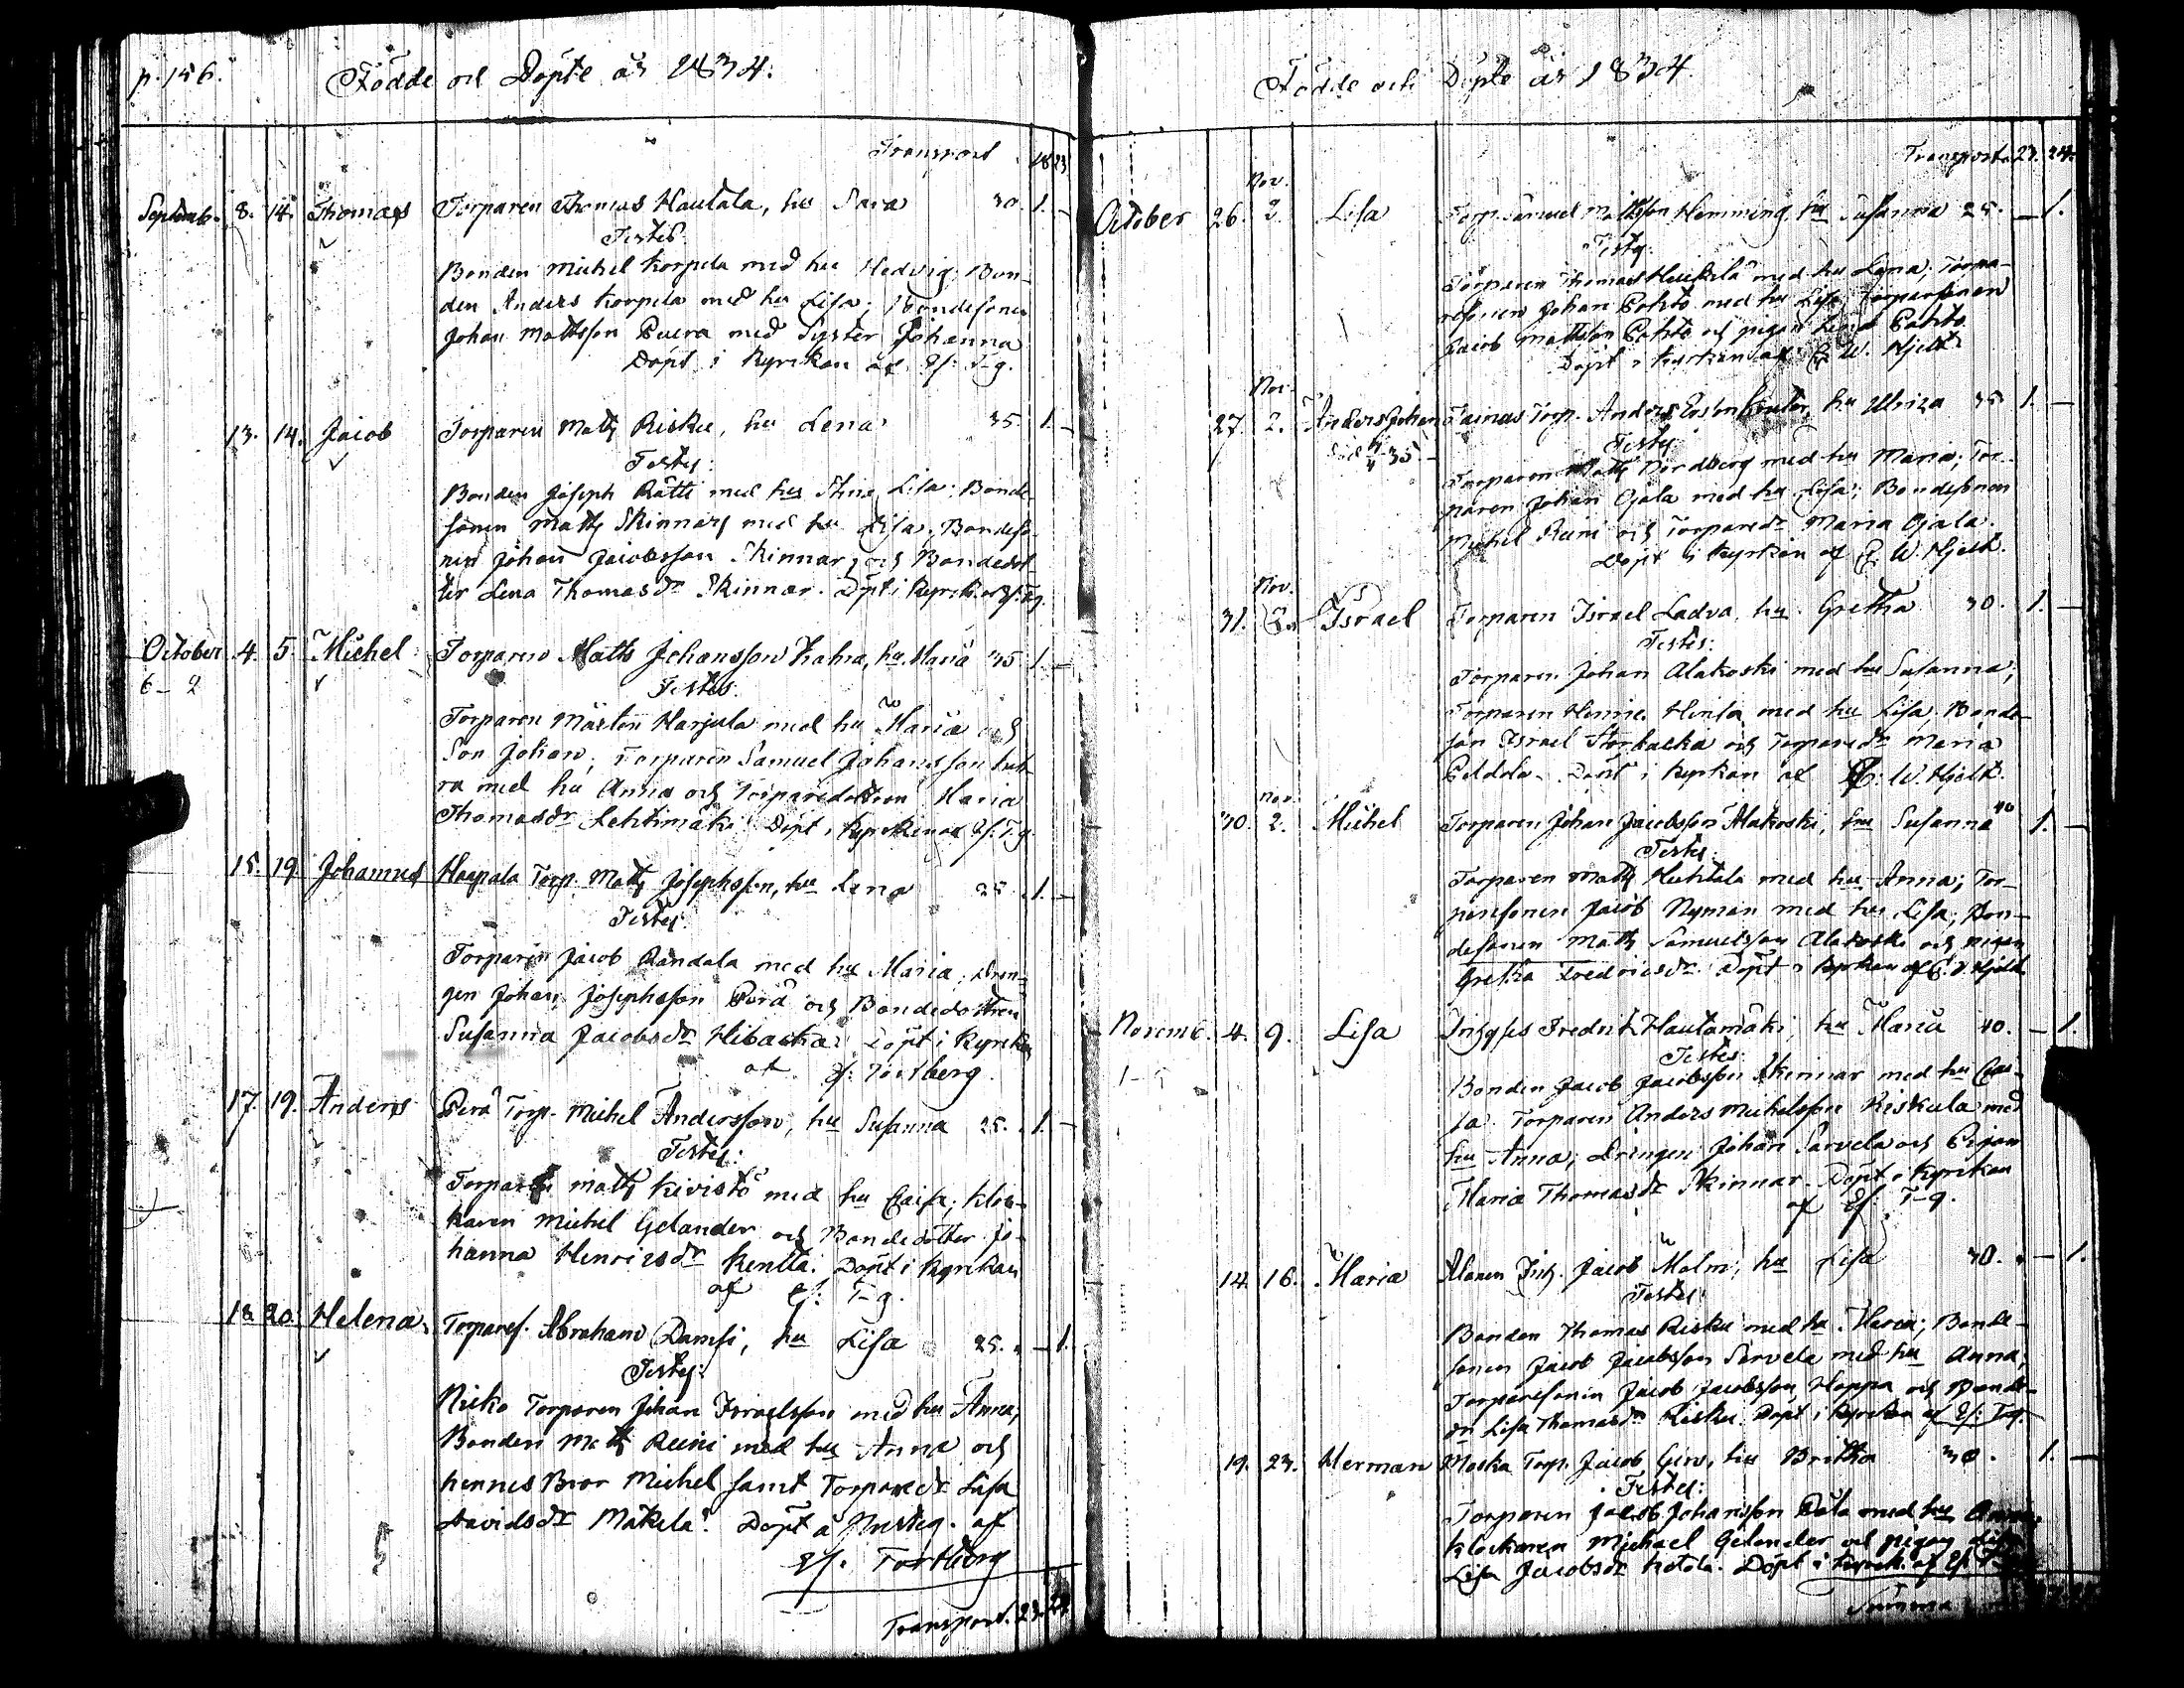 p. 156.
Födde och Döpte år 1834.
Transport 18 23
Septemb. 8. 14. Thomas Torparen Thomas Hautala, hu Sara 30. 1. –
Testes
Bonden Michel Korpela med hu Hedvig; Bon-
den Anders Korpela med hu Lisa; Bondesonen
Johan Mattsson Puera med Syster Johanna
Döpt i Kyrkan af Ef: T-g.
13. 14. Jacob Torparen Matts Risku, hu Lena 35. 1. –
Testes:
Bonden Joseph Rätti med hu Stina Lisa; Bonde-
sonen Matts Skinnar med hu Lisa; Bondeso-
nen Johan Jacobsson Skinnar, och Bondedot-
ter Lena Thomasdr Skinnar. Döpt i Kyrk. af Ef: Tg.
October 4. 5. Michel Torparen Matts Johansson hu Maria 35 1. –
6 – 2
Testes
Torparen Mårten Harjula med hu Maria och
Son Johan; Torparen Samuel Johansson
ra med hu Anna och Torparedottren Maria
Thomasdr Lehtimäki Döpt i Kyrkan af Ef: T-g
15. 19. Johannes Haapala Torp. Matts Josephsson, hu Lena 25. 1. –
Testes:
Torparen Jacob Randala med hu Maria; Dren-
gen Johan Josephsson Perä och Bondedottren
Susanna Jacobsdr Hibacka Döpt i Kyrkan
af Ef: Tortberg.
17. 19. Anders Perä Torp. Michel Andersson, hu Susanna 25. 1. –
Testes:
Torparen Matts Kivistö med hu Caisa; Kloc-
karen Michel Gelander och Bondedotter Jo-
hanna Henricsdr Kentta. Döpt i Kyrkan
af Ef: T-g.
18 20. Helena Torpares. Abraham Damsi, hu Lisa 25. – 1.
Testes:
Niska Torparen Johan Israelsson med hu Anna,
Bonden Matts Reini med hu Anna och
hennes Bror Michel samt Torparedr Lisa
Davidsdr Mäkelä. Döpt å Prestg. af
Ef. Tortberg
Transport. 23. 24
Födde och Döpte år 1834
Transport 23. 24.
Nov.
October 26. 2. Lisa Torp. Samuel Mattsson Hemming hu Susanna 25. – 1.
Testes:
Torparen Thomas med hu Lena; Torpa-
resonen Johan Pohto med hu Lisa; Torparesonen
Jacob Mattsson Pohto och pigan Lena Pohto
Döpt i Kyrkan af C. W. Hjelt
Nov.
27. 2. Anders Johan Torp. Anders hu Ulrica 35 1. –
Testes:
Torparen Matts Nordberg med hu Maria; Tor-
paren Johan Ojala med hu Lisa; Bondesonen
Michel Reini och Torparedr Maria Ojala.
Döpt i Kyrkan af C. W. Hjelt.
Nov.
31. 2. Israel Torparen Israel Ladva, hu Gretha 30. 1. –
Testes:
Torparen Johan Alakoski med hu Susanna;
Torparen Henric Hinsa med hu Lisa, Bonde-
son Israel Storbacka och Torparedr Maria
Peldola. Döpt i Kyrkan af C: W. Hjelt.
Nov.
30. 2. Michel Torparen Johan Jacobsson Alakoski, hu Susanna 40 1. –
Testes:
Torparen Matts Huhtala med hu Anna; Tor-
paresonen Jacob Nyman med hu Lisa; Bon-
desonen Matts Samuelsson Alakoski och pigan
Gretha Fredricsdr Döpt i Kyrkan af C. W Hjelt
Novemb. 4. 9. Lisa Fredrik Hautamäki, hu Maria 40. – 1.
Testes:
Bonden Jacob Jacobsson Skinnar med hu Cai-
sa. Torparen Anders Michelsson Kiskula med
hu Anna; Drengen Johan Sarvela och Pigan
Maria Thomasdr Skinnar. Döpt i Kyrkan
af Ef: T-g.
14. 16. Maria Jacob Malm, hu Lisa 30. – 1.
Testes:
Bonden Thomas Risku med hu Maria; Bonde-
sonen Jacob Jacobsson Sarvela med hu Anna;
Torparesonen Jacob Jacobsson Hoppa och Bonde-
dr Lisa Thomasdr Risku. Döpt i Kyrkan af Ef: T-g.
19. 23. Herman Moska Torp. Jacob hu Britha 30. 1. –
Testes:
Torparen Jacob Johansson Palo med hu Anna,
Klockaren Michael Gelander och pigan
Lisa Jacobsdr Kotola. Döpt i Kyrk. af Ef.
Summa